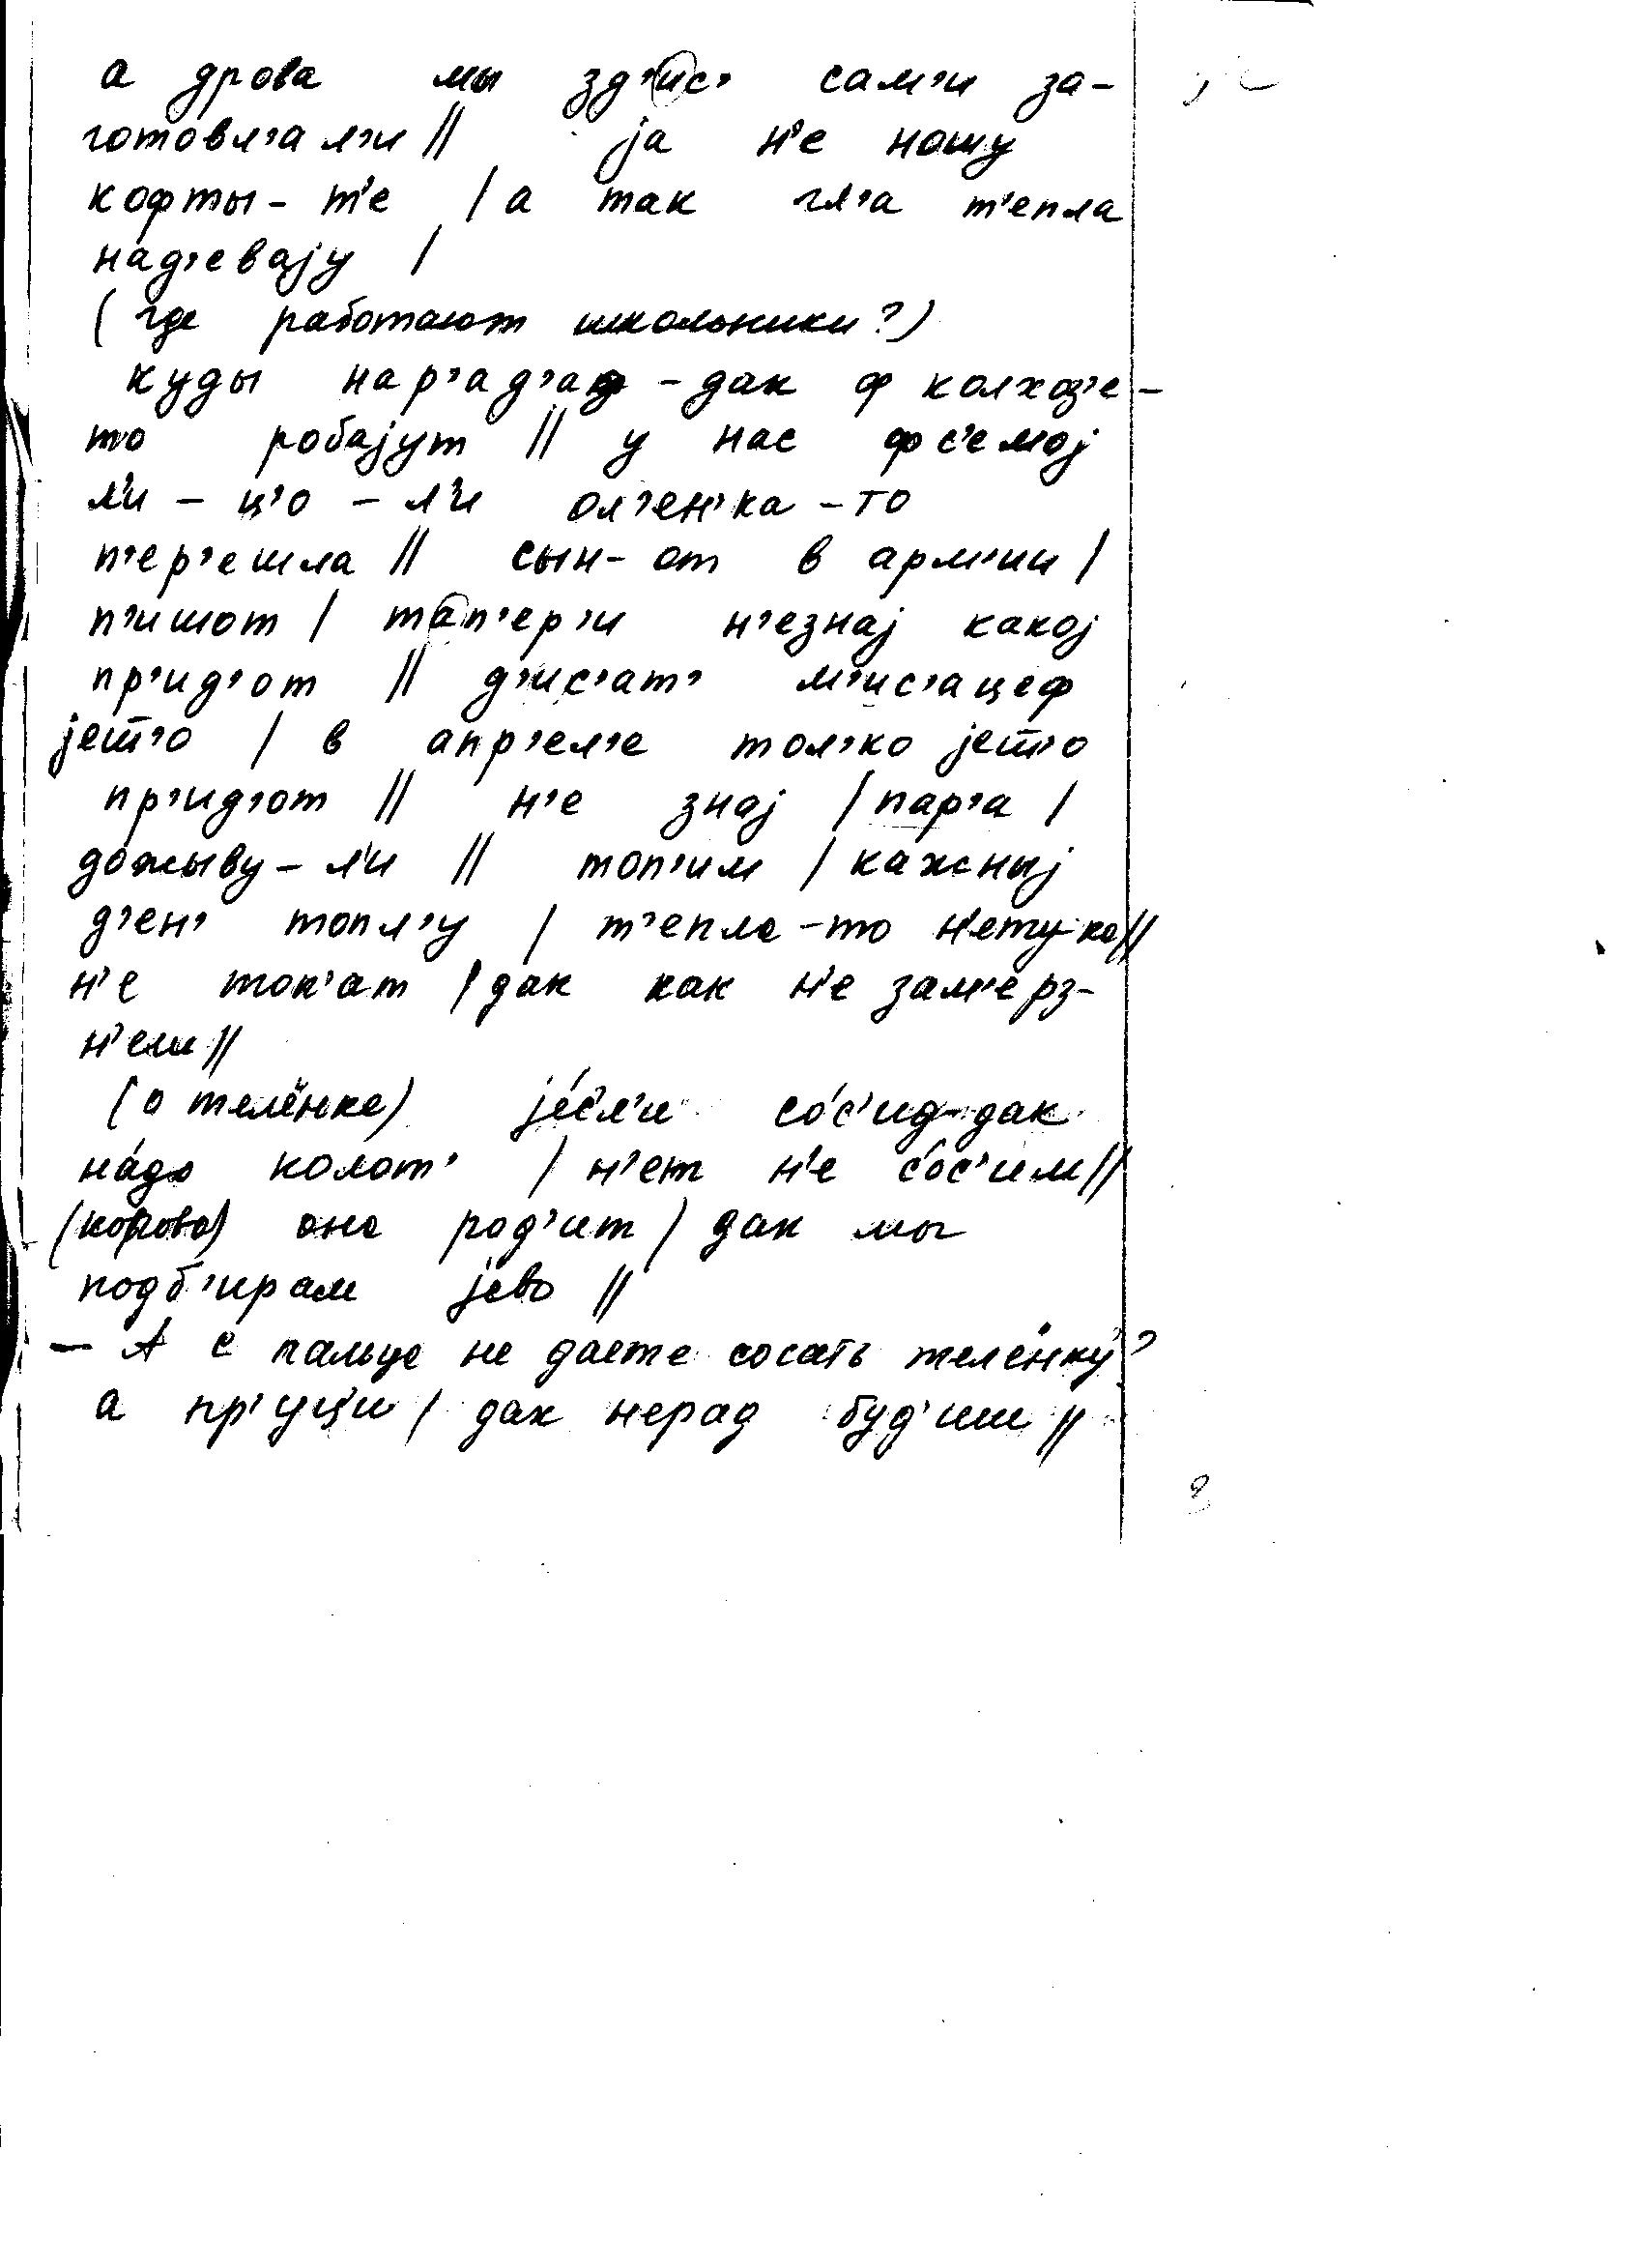 а дрова мы зд'ис' сам'и за-
готовл'а л'и // ја н'е ношу
кофты- т'е / а так гл'а т'епла
над'еваjу /
(где работают школьники?)
куды нар'ад'ад -дак ф колхоз'е-
то робаjут // у нас фс'емоj
л'и - ц'о - л'и ол'ен'ка -то
п'ер'ешла // сын- от в арм'ии /
п'ишот / тап'ер'и н'езнаj какоj
пр'ид'от // д'ис'ат' м'ис'ацеф
jето / в апр'ел'е тол'ко jето
пр'ид'от // н'е знаj / пар'а /
дожыву - л'и // топ'им / кажныj
д'ен' топл'у / т'епла -то н'етука //
н'е топ'ат / дак как н'е зам'ерз-
н'еш //
(о телёнке) jе́сл'и со́с'ид-дак
на́до колот' / н'ет н'е со́с'им //
(корова) она род'ит / дак мы
подб'ирам jево //
— А с пальца не даете сосать телёнку?
а пр'уц'и / дак нерад буд'иш //